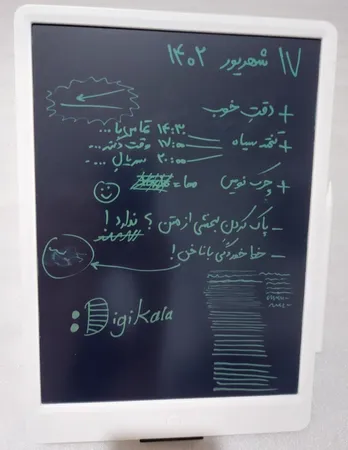 ۱۷ شهریور ۱۴۰۲
+ دقت خوب
۱۴:۳۰ تماس با ...
+ تخته سیاه ۱۷:۰۰ وقت دکتر ...
۲۰:۰۰ سریال ...
+ چرک نویس = ☺
- پاک کردن بخشی از متن؟ ندارد!
- خط خوردگی با ناخن!
:Digikala